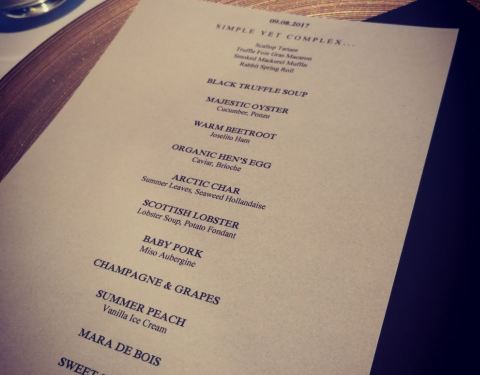 09.08.2017
SIMPLE YET COMPLEX...
Scallop Tartare
Truffle Foie Gras Macaron
Smoked Mackerel Muffin
Rabbit Spring Roll
BLACK TRUFFLE SOUP
MAJESTIC OYSTER
Cucumber, Ponzu
WARM BEETROOT
Joselito Ham
ORGANIC HEN'S EGG
Caviar, Brioche
ARCTIC CHAR
Summer Leaves, Seaweed Hollandaise
SCOTTISH LOBSTER
Lobster Soup, Potato Fondant
BABY PORK
Miso Aubergine
CHAMPAGNE & GRAPES
SUMMER PEACH
Vanilla Ice Cream
MARA DE BOIS
SWEET